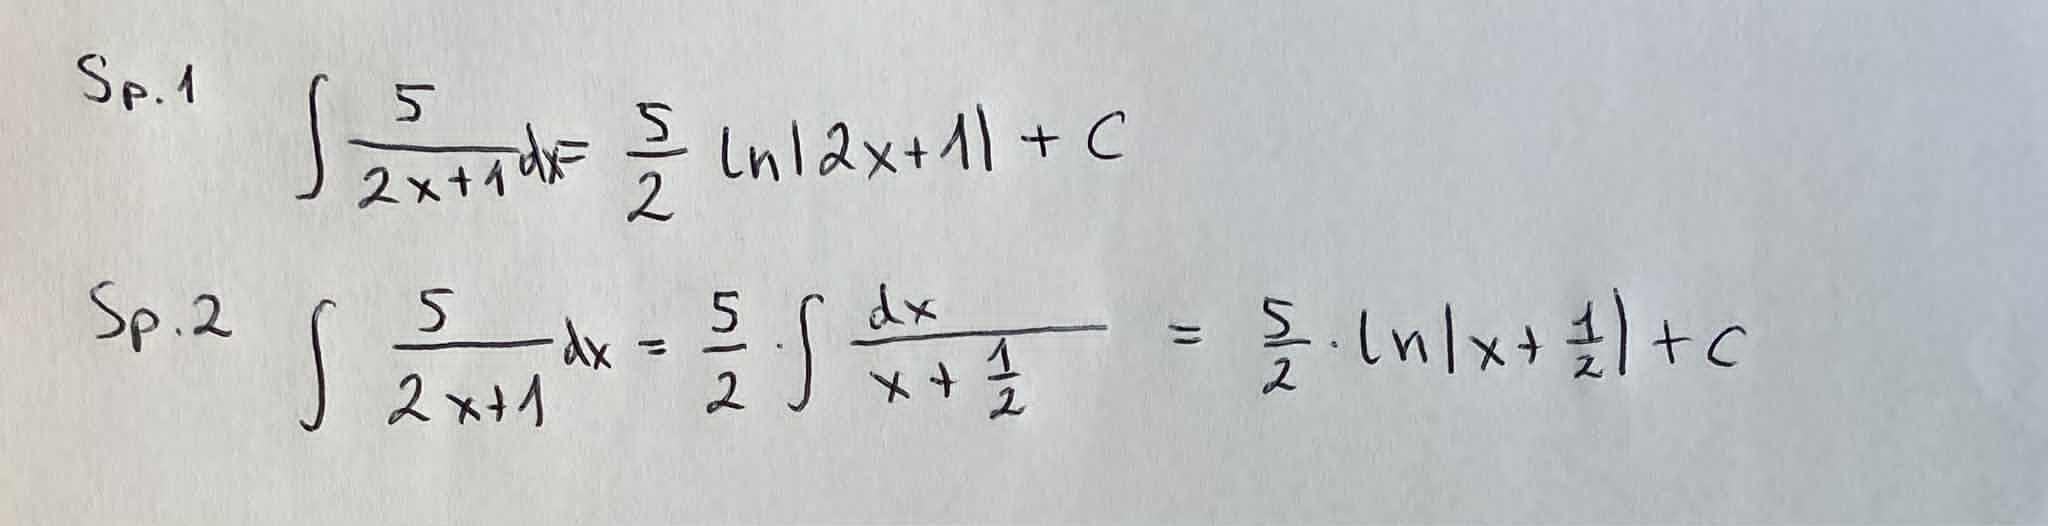 Sp.1 ∫ 5/(2x+1) dx = 5/2 ln|2x+1| + C
Sp.2 ∫ 5/(2x+1) dx = 5/2 · ∫ dx/(x + 1/2) = 5/2 · ln|x + 1/2| + C